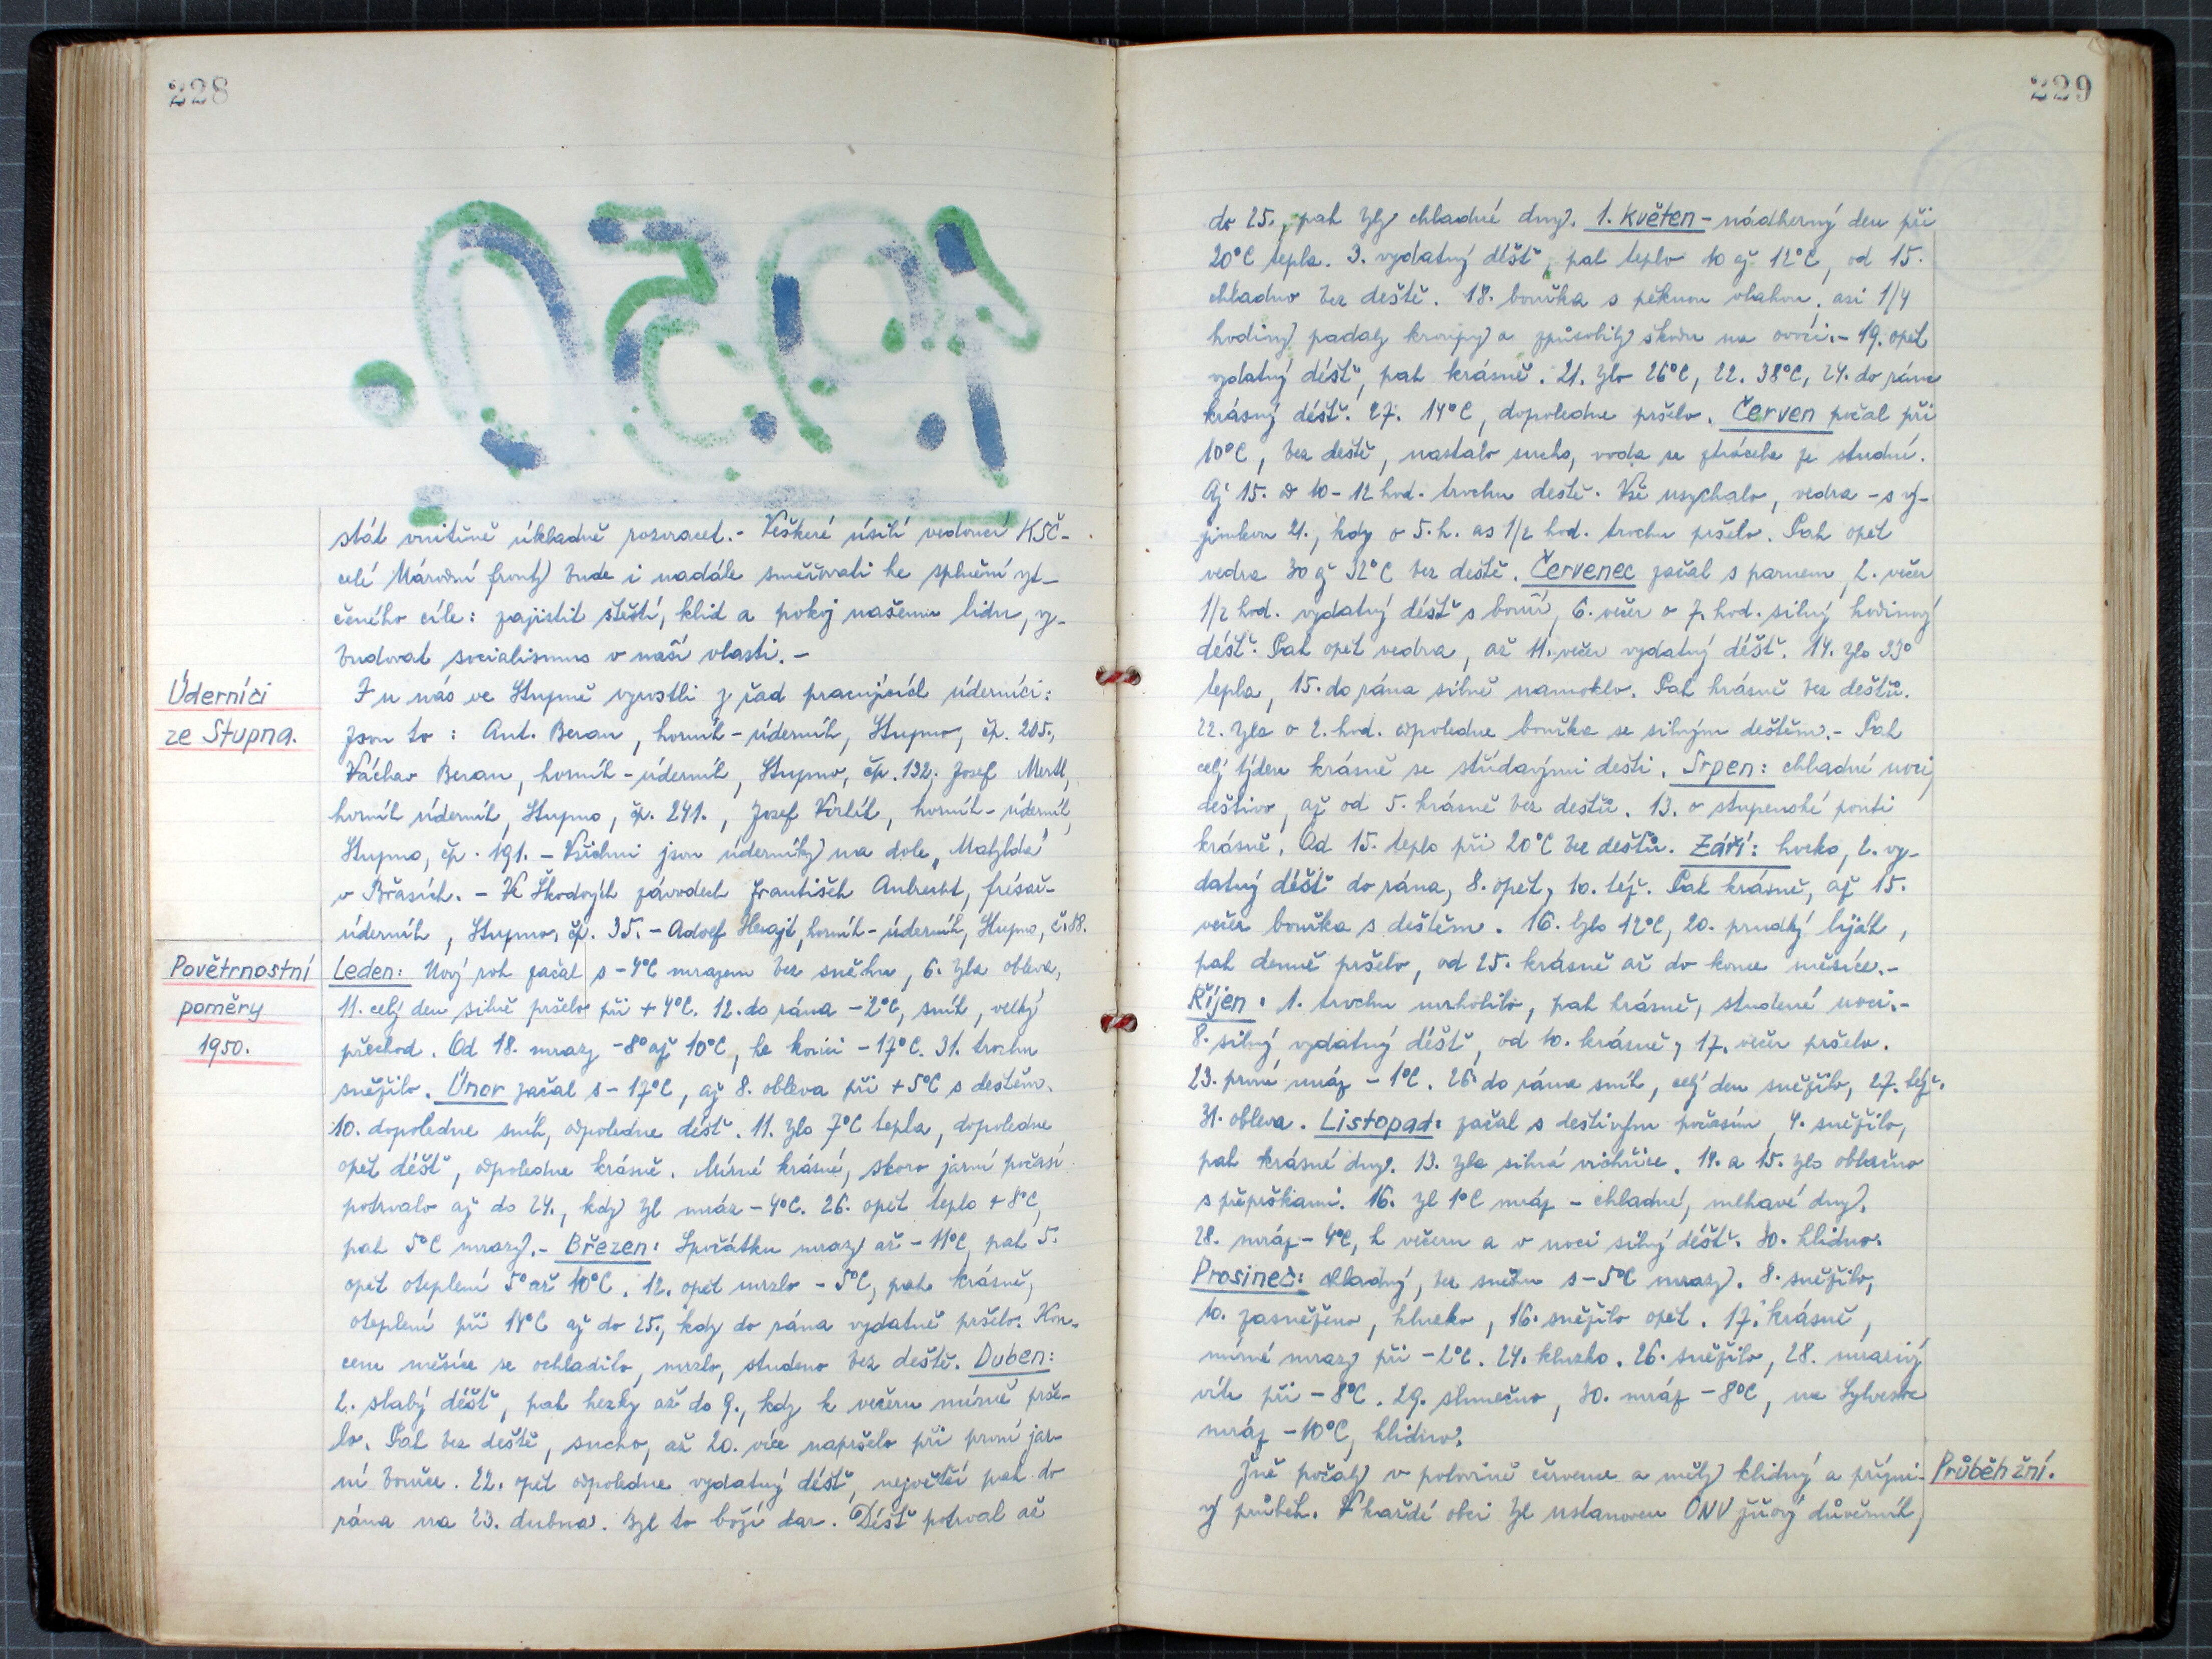 228
stát vnitřně úkladně rozvracet.- Veškeré úsilí vedoucí KSČ-
celé Národní fronty bude i nadále směřovati ke splnění vyt-
čeného cíle: zajistit štěstí, klid a pokoj našemu lidu, vy-
budovat socialismus v naší vlasti.-
Úderníci
ze Stupna.
I u nás ve Stupně vyrostli z řad pracujících úderníci:
Jsou to: Ant. Beran, horník-úderník, Stupno, čp. 205.,
Václav Beran, horník-úderník, Stupno, čp. 192. Josef Mertl,
horník úderník, Stupno, čp. 241., Josef horník-úderník,
Stupno, čp. 191. - Všichni jsou úderníky na dole „Matylda"
v Břasích. - Ve Škodových závodech František frésař-
úderník, Stupno, čp. 35. - Adolf horník-úderník, Stupno, č. 88.
Povětrnostní
poměry
1950.
Leden: Nový rok začal s -4°C mrazem bez sněhu, 6. byla obleva,
11. celý den silně pršelo při +4°C. 12. do rána -2°C, sníh, velký
přechod. Od 18. mrazy -8° až 10°C, ke konci -17°C. 31. trochu
sněžilo. Únor začal s -17°C, až 8. obleva při +5°C s deštěm.
10. dopoledne sníh, odpoledne déšť. 11. bylo 7°C tepla, dopoledne
opět déšť, odpoledne krásně. Mírné krásné, skoro jarní počasí
potrvalo až do 24., kdy byl mráz -4°C. 26. opět teplo +8°C,
pak 5°C mrazy.- Březen: Zpočátku mrazy až -11°C, pak 5.
opět oteplení 5° až 10°C. 12. opět mrzlo -5°C, pak krásně,
oteplení při 14°C až do 25., kdy do rána vydatně pršelo. Kon-
cem měsíce se ochladilo, mrzlo, studeno bez deště. Duben:
2. slabý déšť, pak hezky až do 9., kdy k večeru mírně prše-
lo. Pak bez deště, sucho, až 20. více napršelo při první jar-
ní bouřce. 22. opět odpoledne vydatný déšť, největší pak do
rána na 23. dubna. Byl to boží dar. Déšť potrval až
229
do 25., pak byly chladné dny. 1. Květen - nádherný den při
20°C tepla. 3. vydatný déšť, pak teplo 10 až 12°C, od 15.
chladno bez deště. 18. bouřka s pěknou vlahou, asi 1/4
hodiny padaly kroupy a způsobily škodu na ovoci.- 19. opět
vydatný déšť, pak krásně. 21. bylo 26°C, 22. 38°C, 24. do rána
krásný déšť. 27. 14°C, dopoledne pršelo. Červen počal při
10°C, bez deště, nastalo sucho, voda se ztrácela ze studní.
Až 15. od 10-12 hod. trochu deště. Vše usychalo, vedra - s vý-
jimkou 21., kdy o 5. h. as 1/2 hod. trochu pršelo. Pak opět
vedra 30 až 32°C bez deště. Červenec začal s parnem, 2. večer
1/2 hod. vydatný déšť s bouří, 6. večer o 7. hod. silný hodinový
déšť. Pak opět vedra, až 11. večer vydatný déšť. 14. bylo 33°
tepla, 15. do rána silně namoklo. Pak krásně bez deště.
22. byla o 2. hod. odpoledne bouřka se silným deštěm.- Pak
celý týden krásně se střídavými dešti. Srpen: chladné noci,
deštivo, až od 5. krásně bez deště. 13. o stupenské pouti
krásně. Od 15. teplo při 20°C bez deště. Září: horko, 2. vy-
datný déšť do rána, 8. opět, 10. též. Pak krásně, až 15.
večer bouřka s deštěm. 16. bylo 12°C, 20. prudký liják,
pak denně pršelo, od 25. krásně až do konce měsíce.-
Říjen: 1. trochu mrholilo, pak krásně, studené noci.-
8. silný vydatný déšť, od 10. krásně, 17. večer pršelo.
23. první mráz -1°C. 26. do rána sníh, celý den sněžilo, 27. též.
31. obleva. Listopad: začal s deštivým počasím, 4. sněžilo,
pak krásné dny. 13. byla silná vichřice. 14. a 15. bylo oblačno
s přeprškami. 16. byl 1°C mráz - chladné, mlhavé dny.
28. mráz -4°C, k večeru a v noci silný déšť. 30. klidno.
Prosinec: chladný, bez sněhu s -5°C mrazy. 8. sněžilo,
10. zasněženo, kluzko, 16. sněžilo opět. 17. krásně,
mírné mrazy při -2°C. 24. kluzko. 26. sněžilo, 28. mrazivý
vítr při -8°C. 29. slunečno, 30. mráz -8°C, na Sylvestra
mráz -10°C, klidno.
Průběh žní.
Žně počaly v polovině července a měly klidný a přízni-
vý průběh. V každé obci byl ustanoven ONV žňový důvěrník,